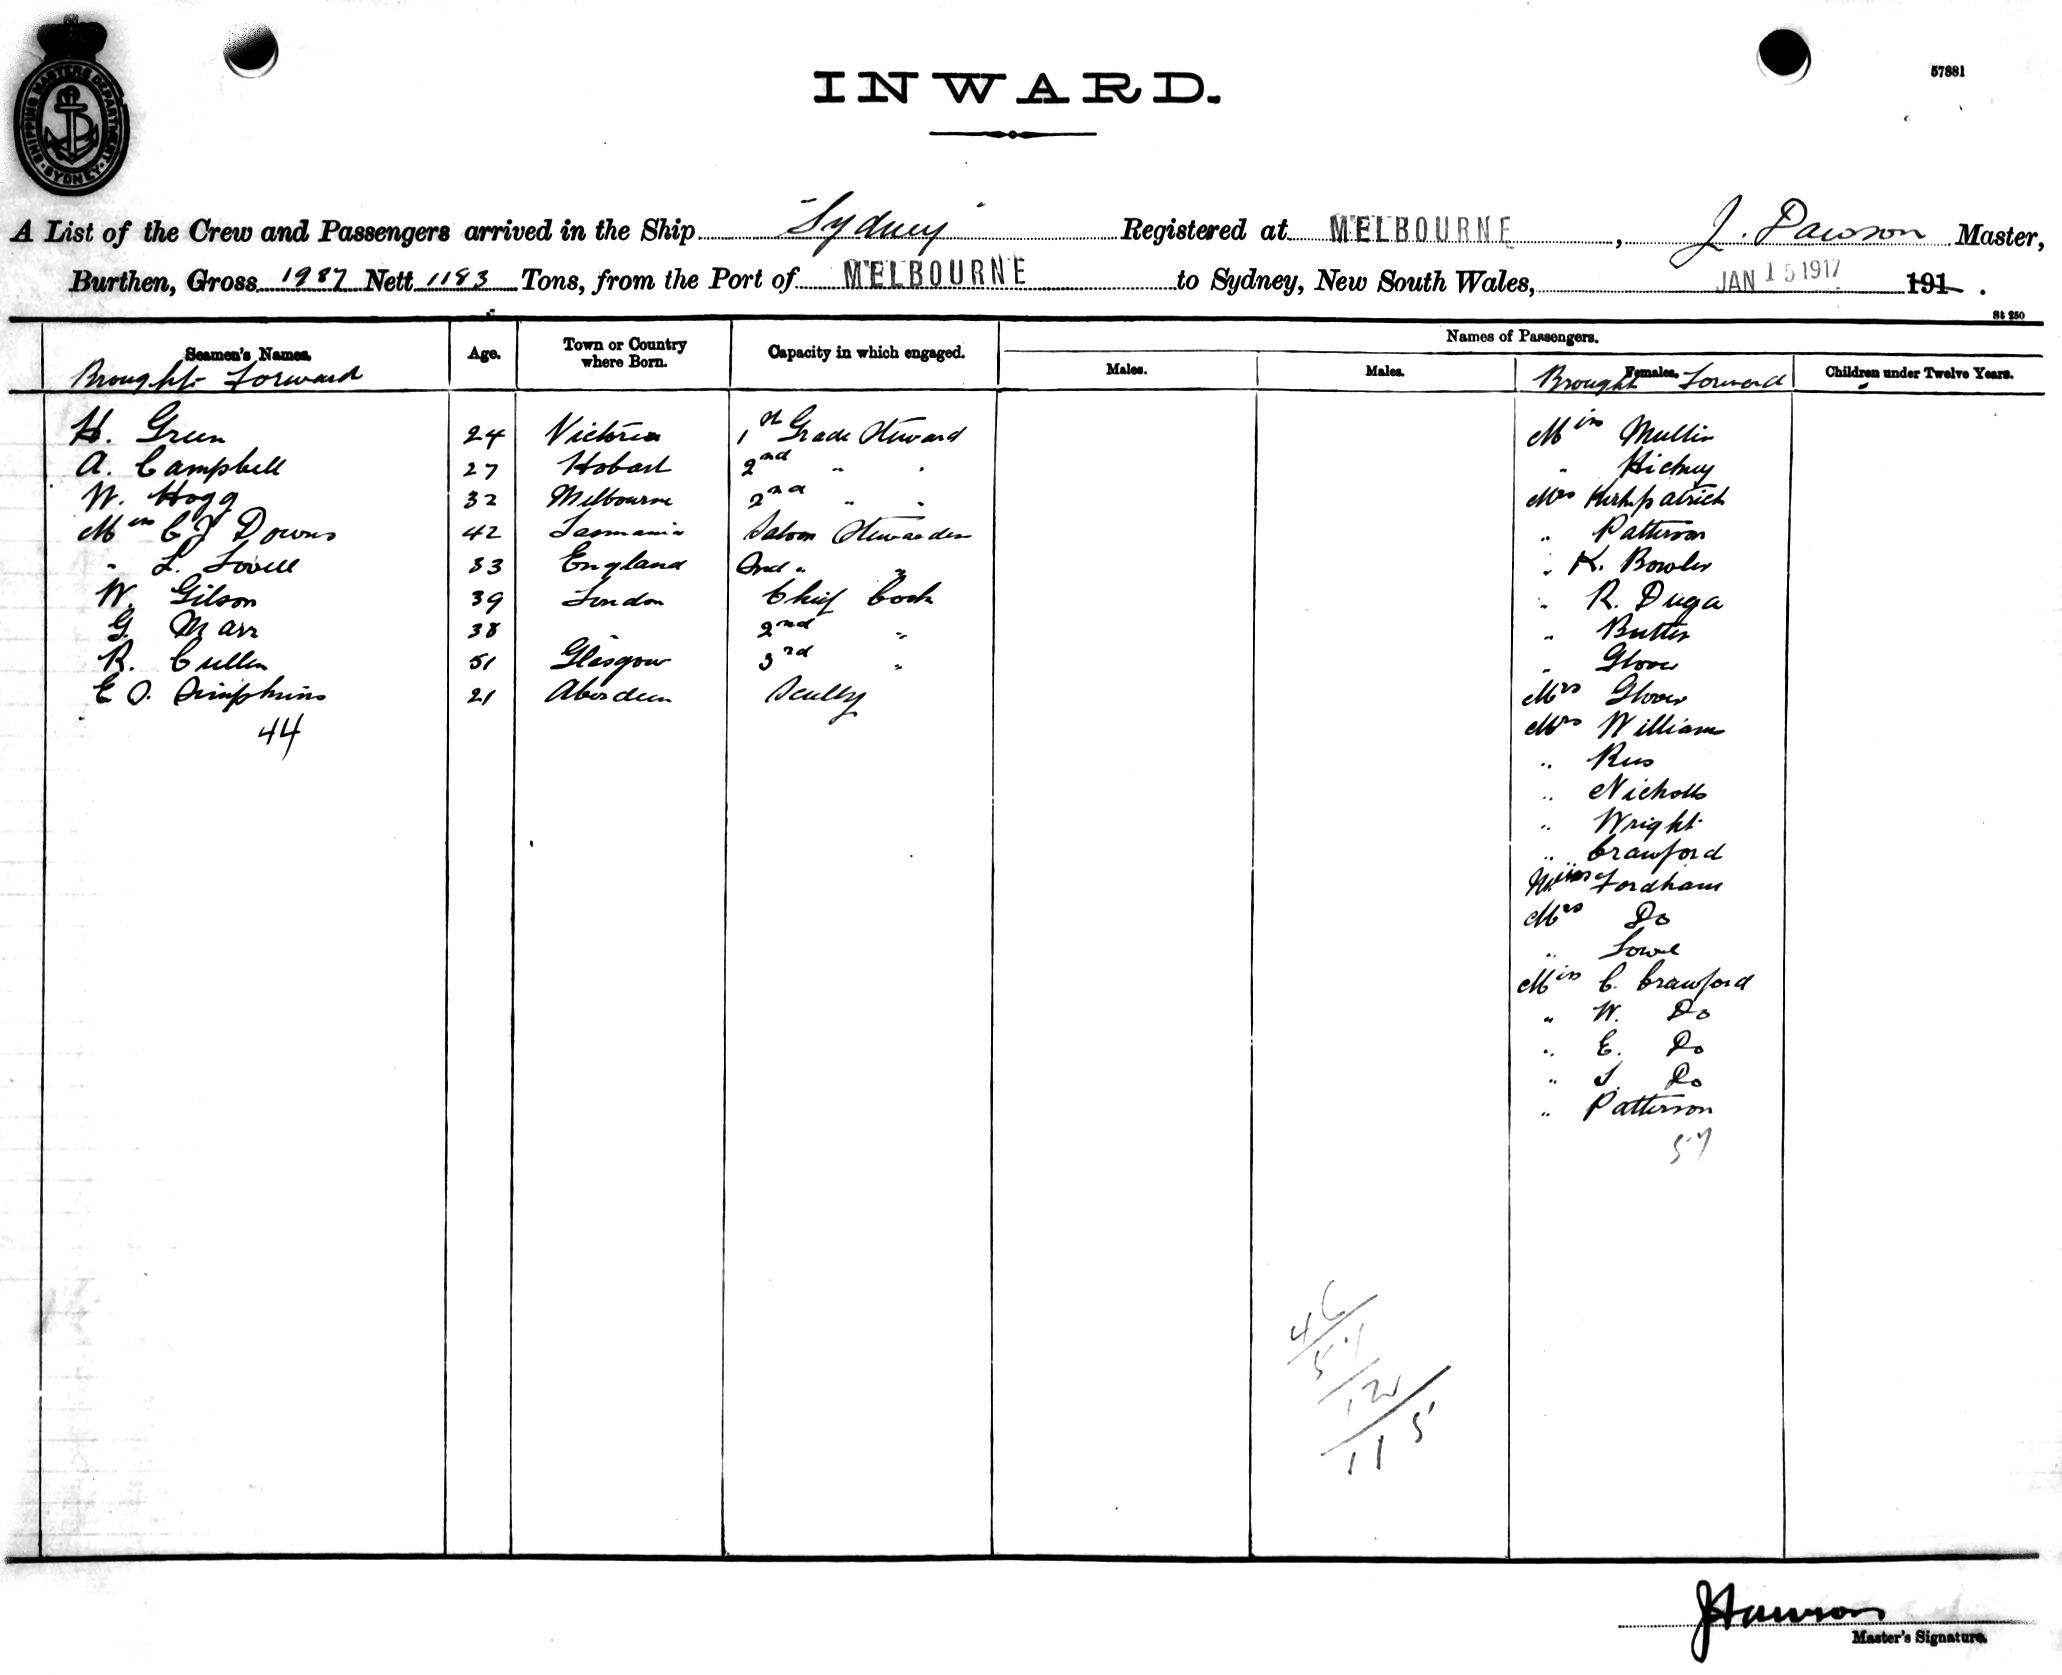 SHIPPING MASTERS DEPARTMENT
SYDNEY
INWARD.
57881
A List of the Crew and Passengers arrived in the Ship "Sydney" Registered at MELBOURNE, J. Dawson Master,
Burthen, Gross 1987 Nett 1183 Tons, from the Port of MELBOURNE to Sydney, New South Wales, JAN 15 1917 191 .
St 250
Seamen's Names. Age. Town or Country where Born. Capacity in which engaged. Names of Passengers.
Males. Males. Females. Children under Twelve Years.
Brought Forward Brought Forward
H. Green 24 Victoria 1st Grade Steward Miss Mullin
A. Campbell 27 Hobart 2nd " " " Hickey
W. Hogg 32 Melbourne 2nd " " Mrs Kirkpatrick
Miss C J Downs 42 Tasmania Saloon Stewardess " Patterson
" L. Lovell 33 England 2nd " " " K. Bowler
W. Gilson 39 London Chief Cook " R. Duga
G. Marr 38 " 2nd " " Butter
R. Cullen 51 Glasgow 3rd " " Glover
E O. Simpkins 21 Aberdeen Scully Mrs Glover
44 Mrs Williams
" Rees
" Nicholls
" Wright
" Crawford
Fordham
Mrs Do
" Lowe
Miss C. Crawford
" W. Do
" E. Do
" J. Do
" Patterson
57
46
57
12
115
J Dawson
Master's Signature.